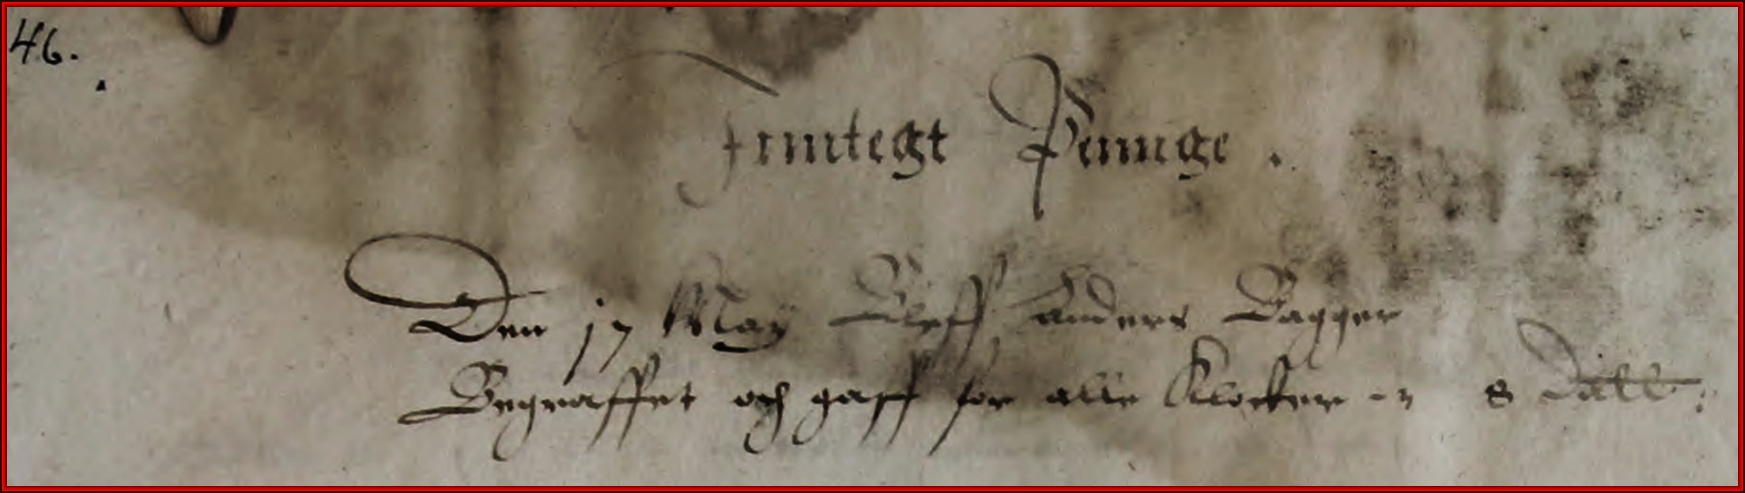 46.
Jnntegt Pennge.
Den 17 May Bleff Anders Bagger
Begraffet och gaff for alle Klocker - 8 Dall: